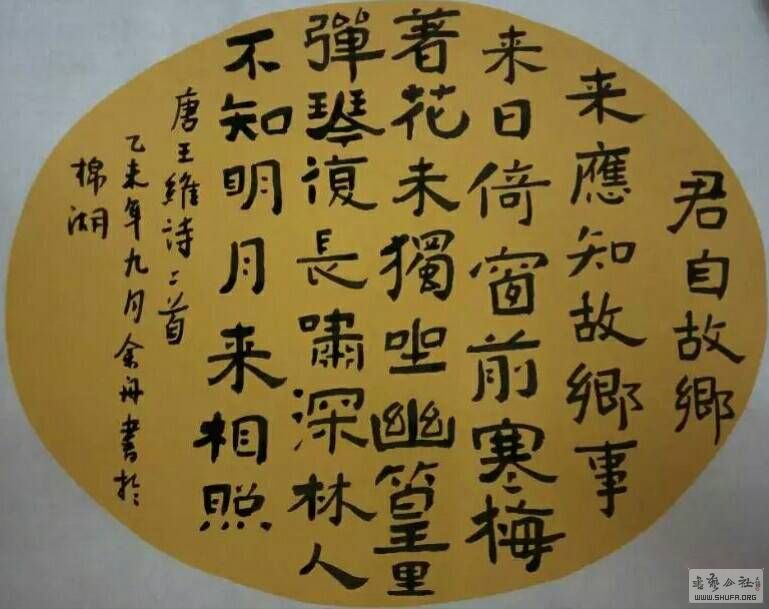 君自故鄉
来應知故鄉事
来日倚窗前寒梅
著花未獨坐幽篁里
彈琴復長嘯深林人
不知明月来相照
唐王維詩二首
乙未年九月余舟書於
棉湖
WWW.SHUFA.ORG